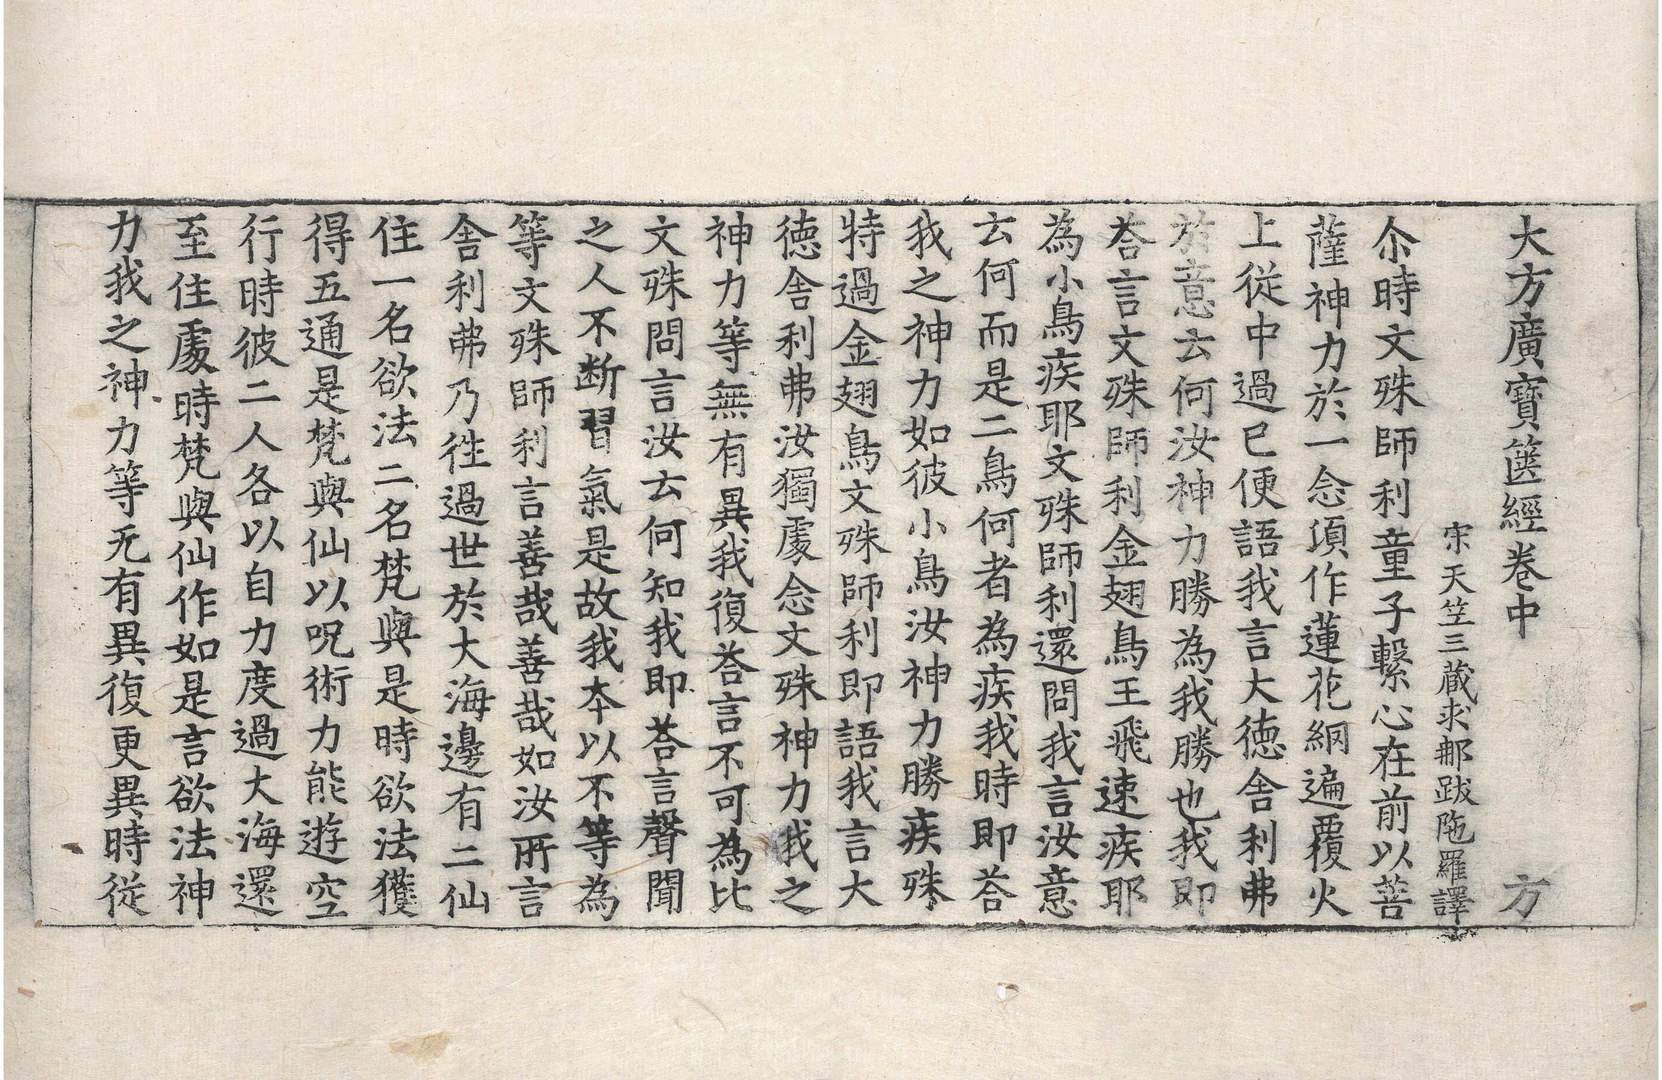 大方廣寶篋經卷中 方
宋天竺三藏求那跋陁羅譯
尒時文殊師利童子繫心在前以菩
薩神力於一念項作蓮花網遍覆火
上從中過已便語我言大德舍利弗
於意云何汝神力勝為我勝也我即
荅言文殊師利金翅鳥王飛速疾耶
為小鳥疾耶文殊師利還問我言汝意
云何而是二鳥何者為疾我時即荅
我之神力如彼小鳥汝神力勝疾殊
特過金翅鳥文殊師利即語我言大
德舍利弗汝獨處念文殊神力我之
神力等無有異我復荅言不可為比
文殊問言汝云何知我即荅言聲聞
之人不断習氣是故我本以不等為
等文殊師利言善哉善哉如汝所言
舍利弗乃徃過世於大海邊有二仙
住一名欲法二名梵與是時欲法獲
得五通是梵與仙以呪術力能遊空
行時彼二人各以自力度過大海還
至住處時梵與仙作如是言欲法神
力我之神力等无有異復更異時從